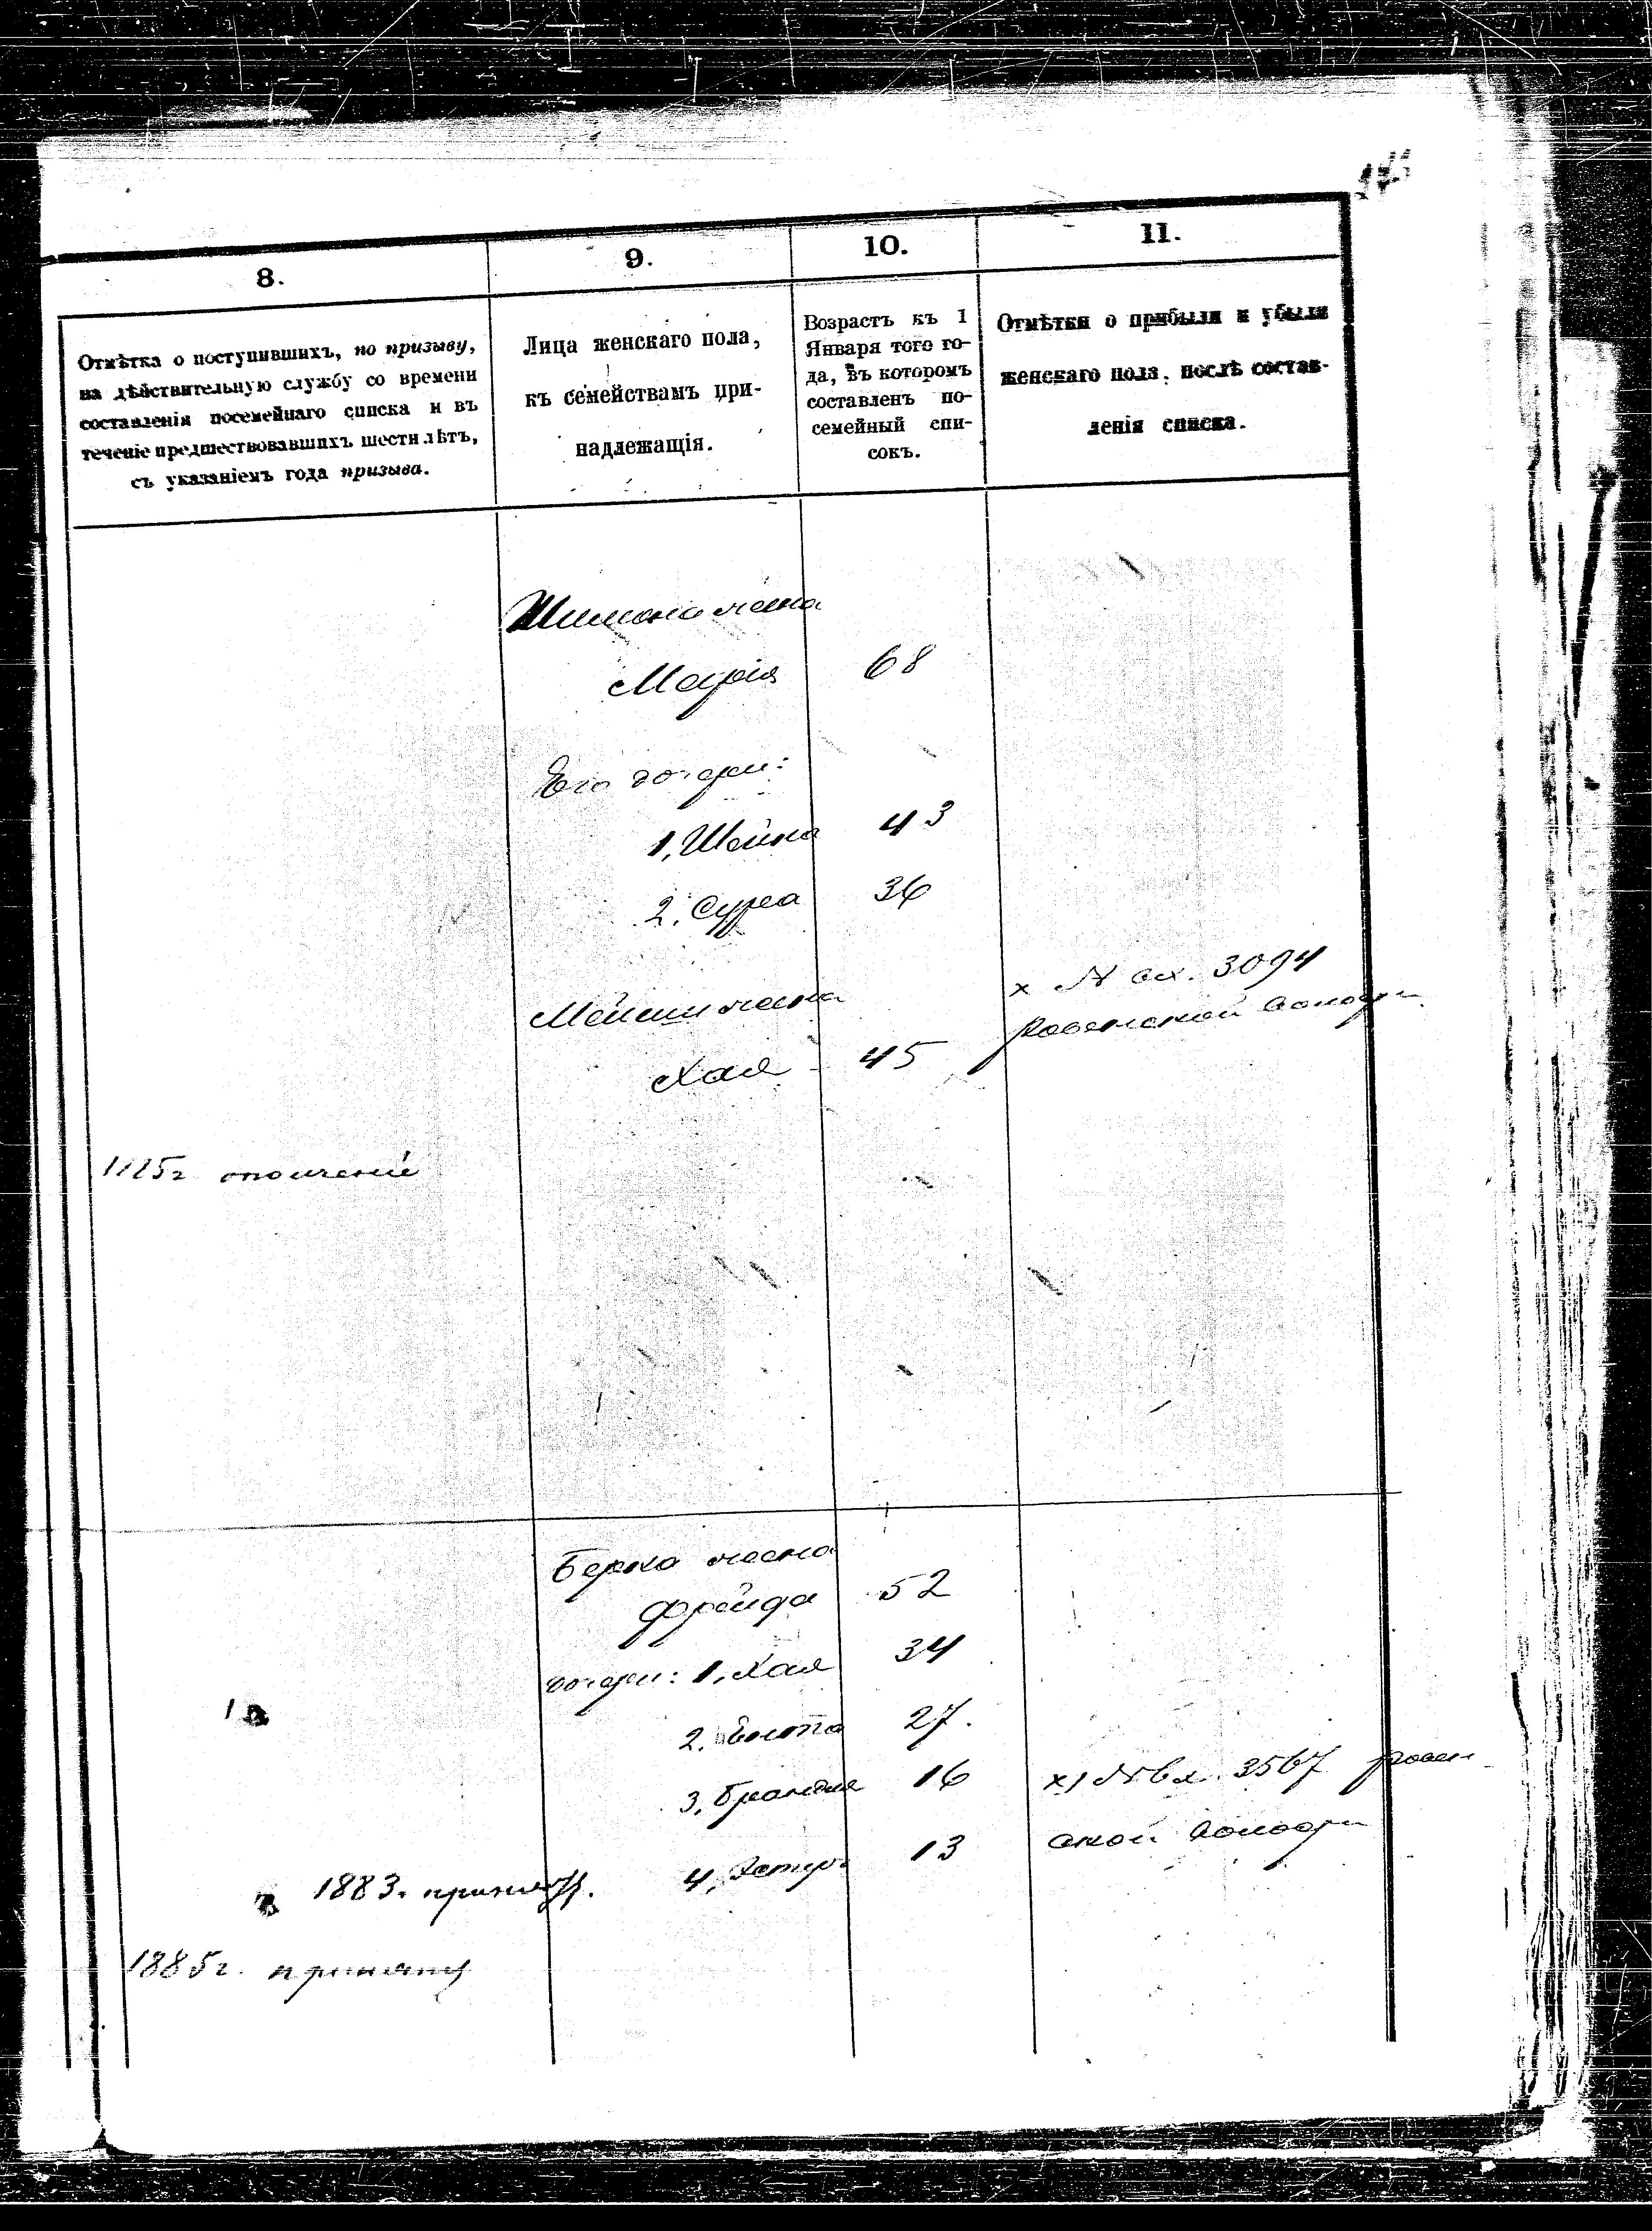 8.
9.
10.
11.
Отмѣтка о поступившихъ, по призыву,
на дѣйствительную службу со времени
составленія посемейнаго списка и въ
теченіе предшествовавшихъ шести лѣтъ,
съ указаніемъ года призыва.
Лица женскаго пола,
къ семействамъ при-
надлежащія.
Возрастъ къ 1
Января того го-
да, въ которомъ
составленъ по-
семейный спи-
сокъ.
Отмѣтки о прибыли и убыли
женскаго пола, послѣ состав-
ленія списка.
Шимона жена
Марія 68
Его дочери:
1, Шейна 43
2, Сурса 36
Мейши жена
х № вх. 3094
Хая 45
ополченіе
Берко жена
Фрейда 52
дочери: 1, Хая 34
2, 27.
3, 16 х) № вх. 3567
1883. 4, Эстер 13 ской
1885г. принятъ